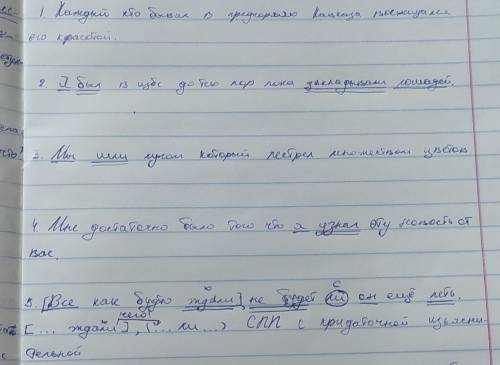 1. Каждый кто бывал в предгорьях Кавказа восхищался
его красотой.
2. Я был в избе до тех пор пока закладывали лошадей.
3. Мы шли лугом который пестрел множеством цветов
4. Мне достаточно было того что я узнал эту новость от
вас.
5. [Все как будто ждали], не будет ли он ещё петь.
чего?
[... ждали], (... ли...) СПП с придаточной изъясни-
тельной